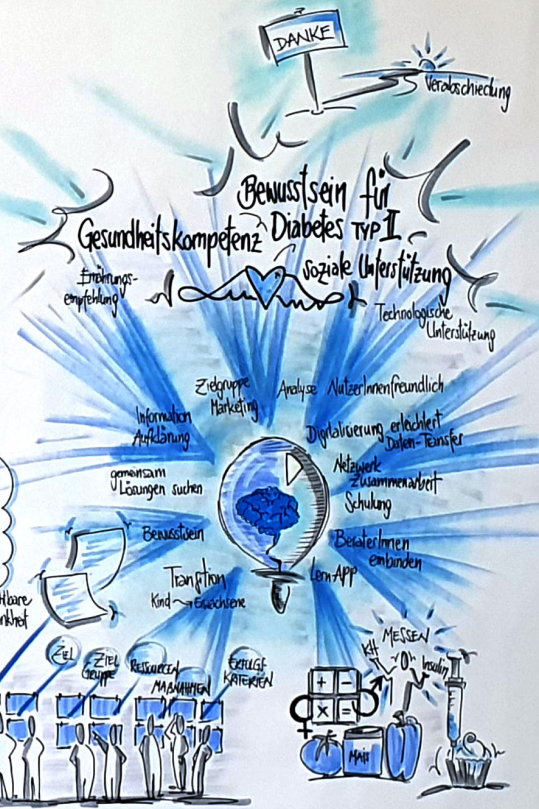 DANKE
Verabschiedung
Bewusstsein für
Gesundheitskompetenz
Diabetes TYP II
soziale Unterstützung
Ernährungs-
empfehlung
Technologische
Unterstützung
Zielgruppe
Marketing
Analyse
NutzerInnenfreundlich
Information
Aufklärung
Digitalisierung erleichtert
Daten-Transfer
gemeinsam
Lösungen suchen
Netzwerk
Zusammenarbeit
Schulung
Bewusstsein
BeraterInnen
einbinden
Transition
Kind → Erwachsene
Lern-App
ZIEL
ZIEL
GRUPPE
RESSOURCEN
MAßNAHMEN
ERFOLGS
KRITERIEN
MESSEN
KH
Insulin
+ −
× =
MAIS